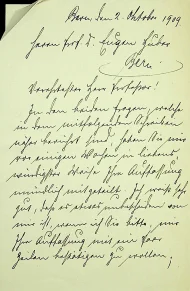 Bern, den 2. Oktober 1909
Herrn Prof. D. Eugen Huber
Bern.
Verehrtester Herr Professor!
In den beiden Fragen, welche
in dem mitfolgenden Schreiben
näher berührt sind, haben Sie mir
vor einigen Wochen in liebens-
würdigster Weise Ihre Auffassung
mündlich mitgeteilt. Ich weiss sehr
gut, dass es etwas unbescheiden von
mir ist, wenn ich Sie bitte, mir
Ihre Auffassung mit ein paar
Zeilen bestätigen zu wollen,